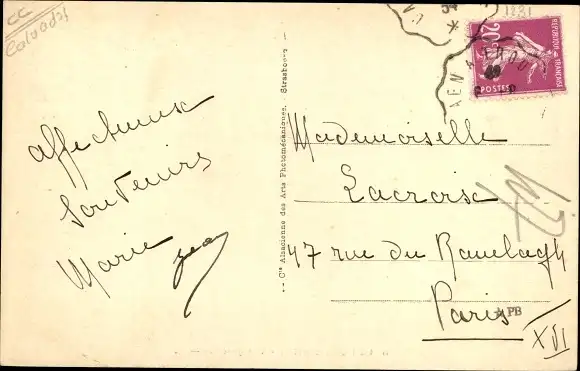 CC
Calvados
Affectueux
Souvenirs
Marie
Mademoiselle
Lacroix
47 rue du Ranelagh
Paris
XVI
REPUBLIQUE FRANÇAISE
20c
POSTES
Cie Alsacienne des Arts Photomécaniques, Strasbourg
PB